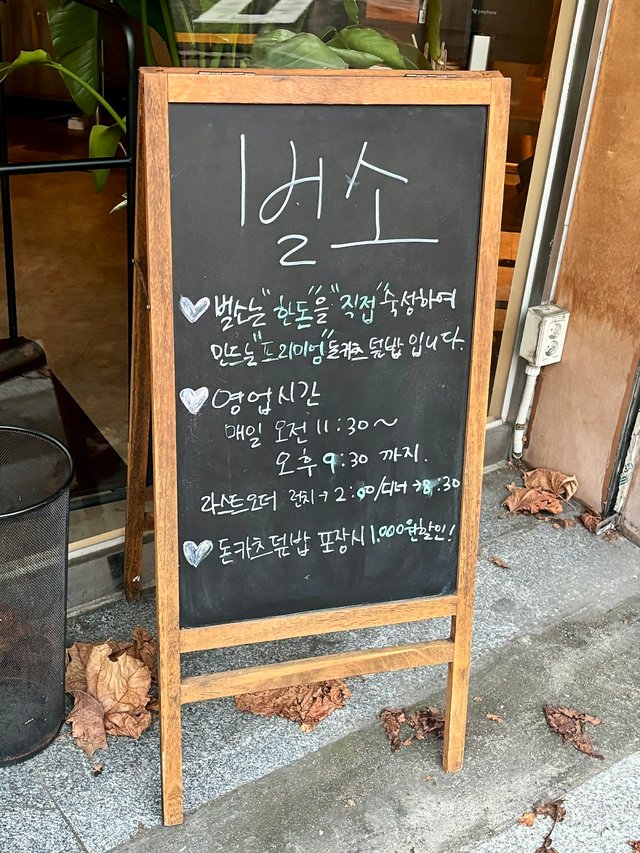 payhere
벌소
벌소는 "한돈"을 "직접" 숙성하여
만드는 "프리미엄" 돈카츠 덮밥 입니다.
영업시간
매일 오전 11:30~
오후 9:30 까지.
라스트오더 런치→2:00/디너→8:30
돈카츠덮밥 포장시 1,000원할인!